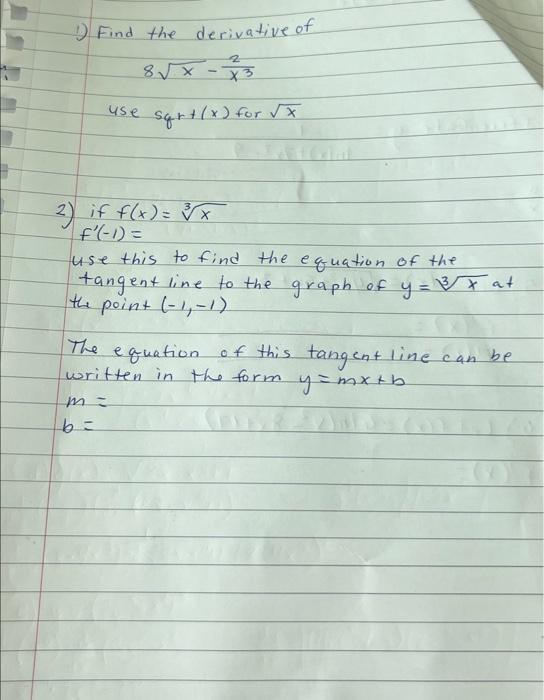 1) Find the derivative of
8√x - 2/x³
use sqrt(x) for √x
2) if f(x) = ∛x
f'(-1) =
use this to find the equation of the
tangent line to the graph of y = ∛x at
the point (-1,-1)
The equation of this tangent line can be
written in the form y = mx + b
m =
b =